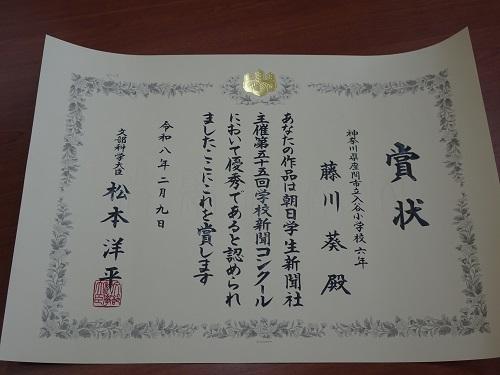 賞状
神奈川県座間市立入谷小学校 六年
藤川 葵 殿
あなたの作品は朝日学生新聞社
主催第五十五回学校新聞コンクール
において優秀であると認められ
ましたここにこれを賞します
令和八年二月九日
文部科学大臣 松本洋平